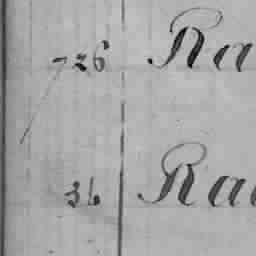 726 Ra
36 Ra